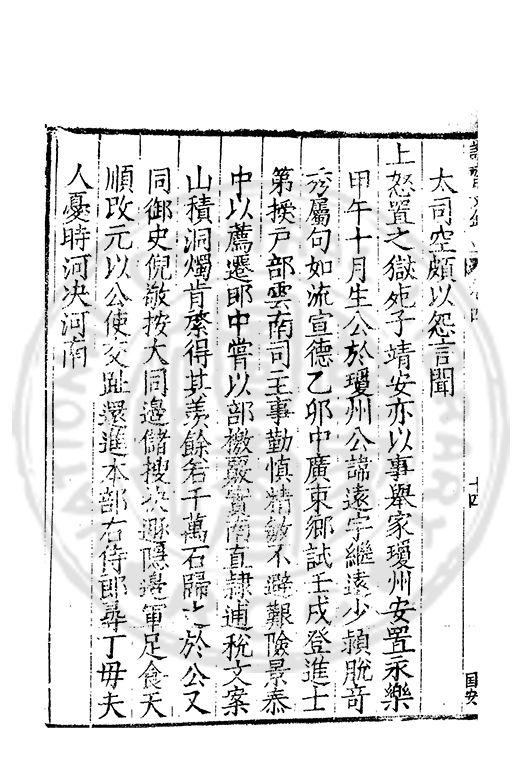 太司空頗以怨言聞
上怒置之獄死子靖安亦以事舉家瓊州安置永樂
甲午十月生公於瓊州公諱遠字繼遠少穎脫奇
秀屬句如流宣德乙卯中廣東鄉試壬戌登進士
第授戶部雲南司主事勤慎精敏不避艱險景泰
中以薦遷郎中嘗以部檄覈實南直隷逋稅文案
山積洞燭肯綮得其羡餘若千萬石歸之於公又
同御史倪敬按大同邊儲搜抉遁隱邊軍足食天
順改元以公使交趾還進本部右侍郎尋丁毋夫
人憂時河决河南
十四
国安